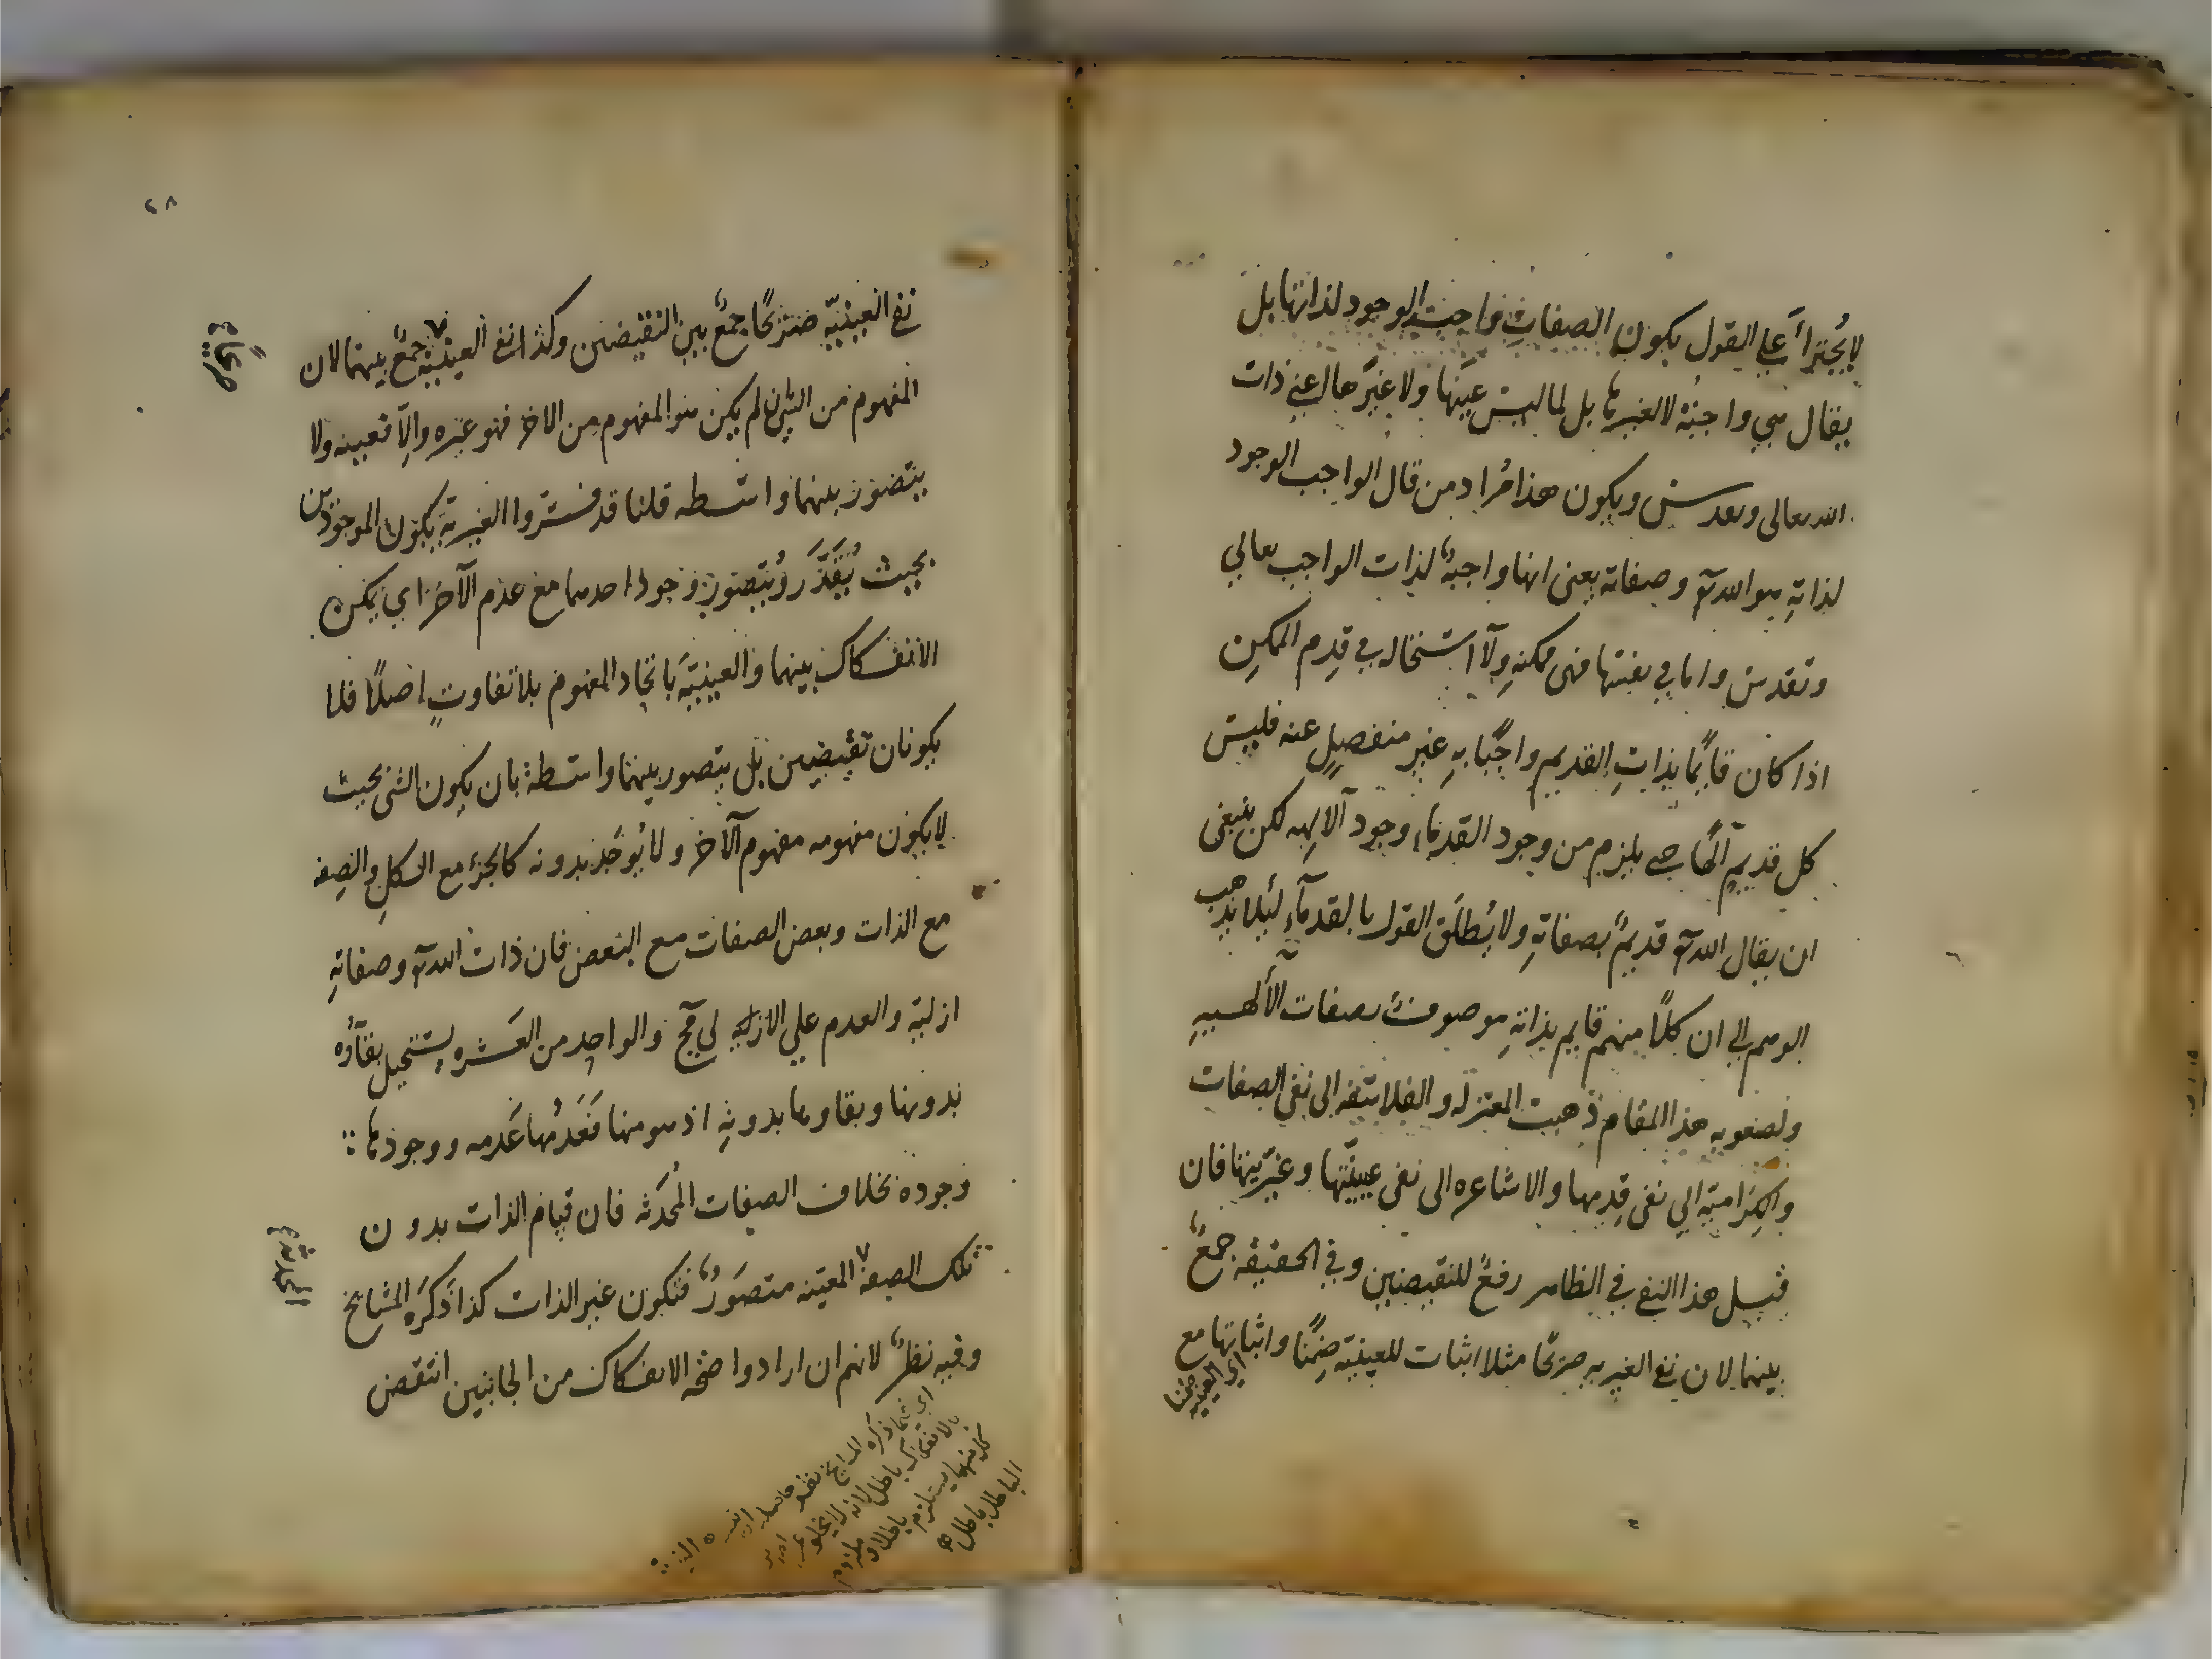 لا يُجتَرأ على القول بكون الصفات واجبة الوجود لذاتها بل
يقال هي واجبة لا لغيرها بل لما ليس عينَها ولا غيرَها اعني ذات
الله تعالى وتقدس ويكون هذا مُراد من قال الواجب الوجود
لذاتهِ هو الله تع وصفاته يعنى انها واجبةٌ لذات الواجب تعالي
وتقدس واما في نفسها فهى ممكنه ولآ استحاله في قِدم الممكن
اذا كان قايمًا بذاتِ القديم واجبًا بهِ غير منفصِلٍ عنه فليس
كل قديمٍ آلهًا حتى يلزم من وجود القدمآء وجود آلالهه لكن ينبغى
ان يقال الله تع قديمٌ بصفاتهِ ولا يُطلَق القول بالقدمآءِ لئلا يذهب
الوهم الى ان كلًا منهم قايم بذاتهِ موصوفٌ بصفات الألهيهِ
ولصعوبه هذا المقام ذهبت المعتزله والفلاسفه الى نفي الصفات
والكرّاميّة الي نفى قِدمها والاشاعره الى نفى عينيّتها وغيرّيتها فان
قيل هذا النفى في الظاهر رفعٌ للنقيضين وفي الحقيقه جمعٌ
بينهما لان نفى الغيريه صرِيحًا مثلا اثبات للعينيّة ضِمنًا واثباتها مع
اي العينيه ضمنا
٢٨
نفى العينيّة صَريحًا جمعٌ بين النقيضين وكذا نفى العينيّة جمعٌ بينهما لان
صريحًا
المفهوم من الشئ ان لم يكن هو المفهوم من الاخر فهو غيره وإلآ فعينه ولا
يتصور بينهما واسطه قلنا قد فسّروا الغيريةَ بكون الموجودين
بحيث يُقَدَّرَ ويُتصور وجود احدهما مع عدم آلاخر اي يمكن
الانفكاك بينهما والعينيّةَ باتحاد المفهوم بلا تفاوتٍ اصلًا فلا
يكونان نقيضين بل يتصور بينهما واسطة بان يكون الشئ بحيث
لا يكون مفهومه مفهوم آلاخر ولا يُوجَد بدونه كالجزء مع الكلِ والصِفه
مع الذات وبعض الصفات مع البعض فان ذات الله تع وصفاتهِ
ازليّه والعدم علي الازلي مح والواحِد من العَشَره يستحيل بقآؤه
بدونها وبقاوها بدونهِ اذ هو منها فَعَدمُها عَدمه ووجودها
وجوده بخلاف الصفات المُحدَثه فان قيام الذات بدون
المحدثه
تلك الصفة المعيّنه متصَورٌ فتكون غير الذات كذا ذكَرَه المشايخ
وفيه نظرٌ لانهم ان ارادوا صحّه الانفكاك من الجانبين انتقض
اي فيما ذكره المشايخ
بالانفكاك باطل لانه لا يخلو
كل منهما يستلزم باطلا
الباطل باطل